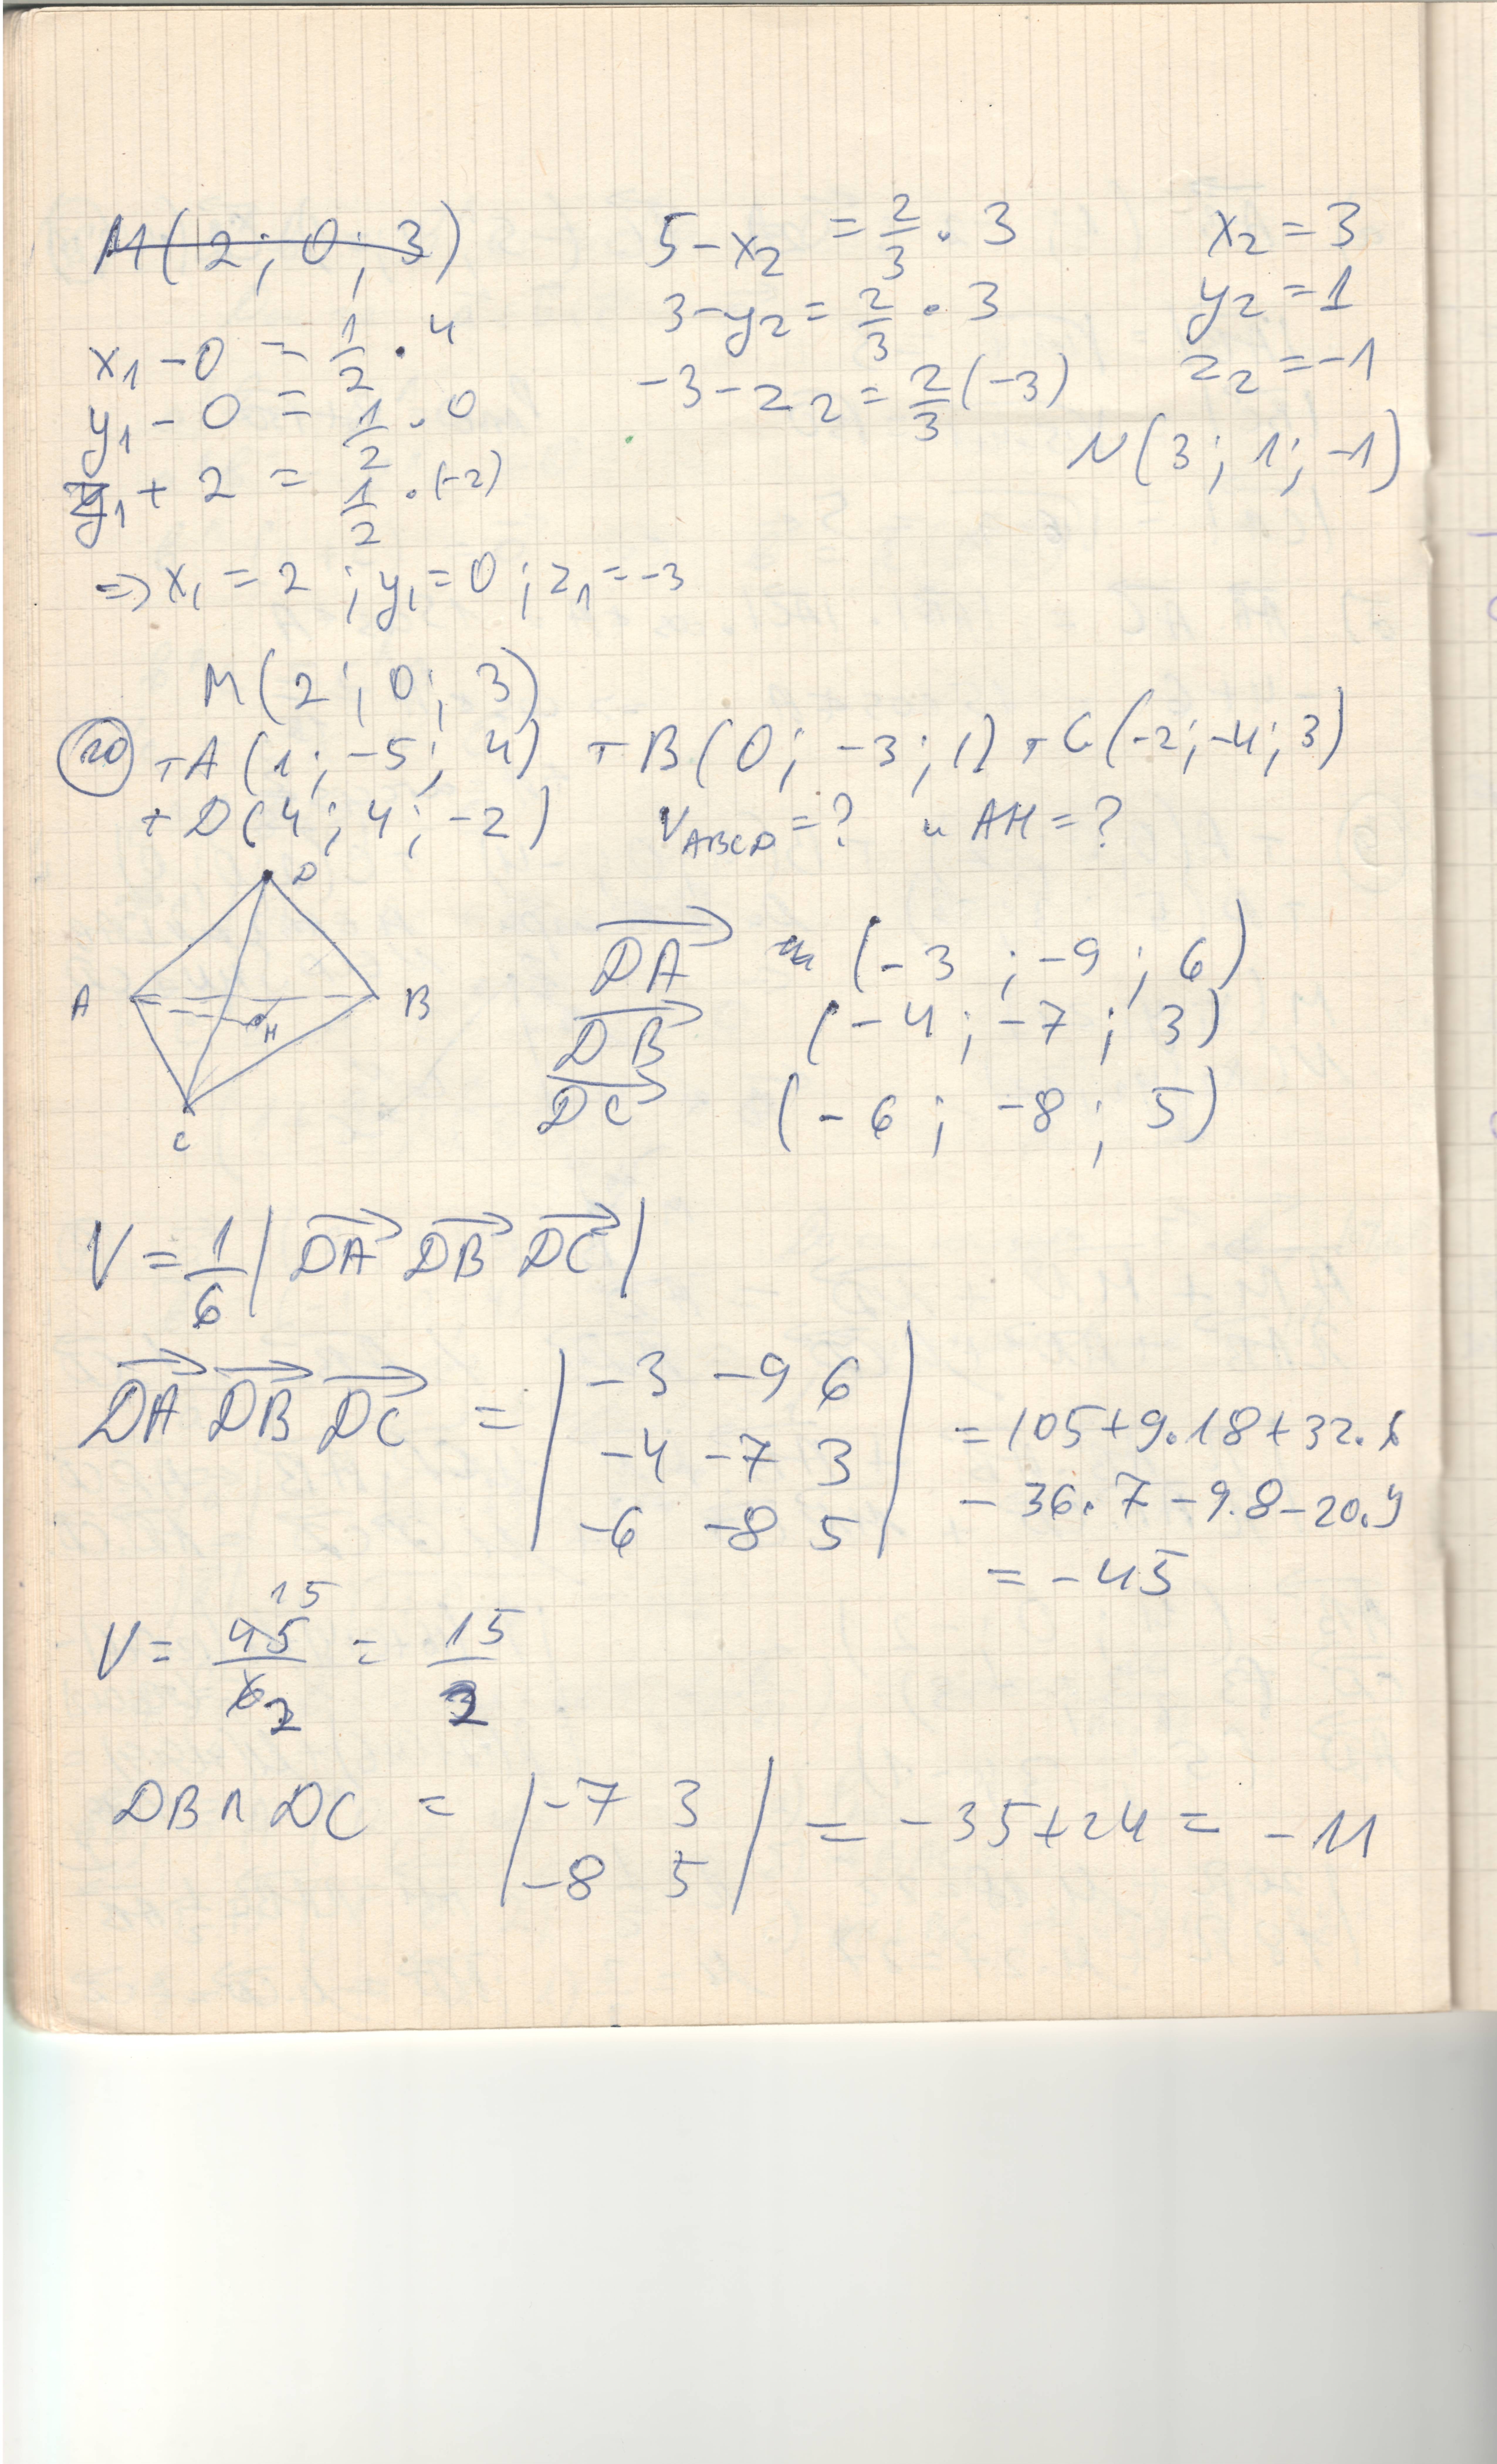 M(2; 0; 3)
x₁ - 0 = 1/2 . 4
y₁ - 0 = 1/2 . 0
z₁ + 2 = 1/2 . (-2)
=> x₁ = 2 ; y₁ = 0 ; z₁ = -3
M(2; 0; 3)
5 - x₂ = 2/3 . 3
3 - y₂ = 2/3 . 3
-3 - z₂ = 2/3 (-3)
x₂ = 3
y₂ = 1
z₂ = -1
N(3; 1; -1)
20 т A(1; -5; 4) т B(0; -3; 1) т C(-2; -4; 3)
т D(4; 4; -2) V_ABCD = ? и AH = ?
D
A B
H
C
DA→ (-3 ; -9 ; 6)
DB→ (-4 ; -7 ; 3)
DC→ (-6 ; -8 ; 5)
V = 1/6 | DA→ DB→ DC→ |
DA→ DB→ DC→ = | -3 -9 6 | = 105 + 9.18 + 32.6
| -4 -7 3 | - 36.7 - 9.8 - 20.9
| -6 -8 5 | = -45
V = 45/6 = 15/2
15
2
DB ∧ DC = | -7 3 | = -35 + 24 = -11
| -8 5 |